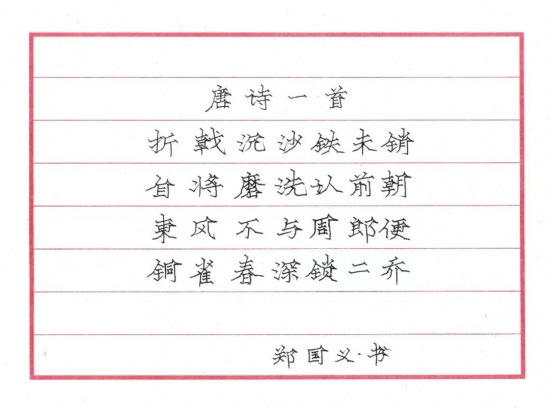 唐诗一首
折戟沉沙鉄未銷
自将磨洗认前朝
東风不与周郎便
銅雀春深鎖二乔
郑国义·书